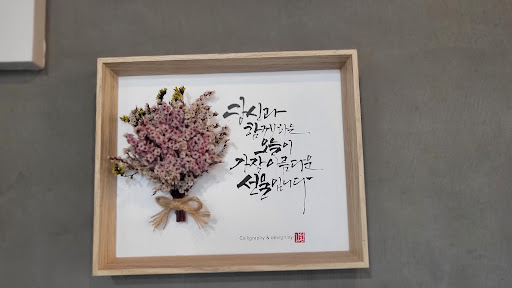 당신과
함께하는
오늘이
가장 아름다운
선물입니다
Calligraphy & design by